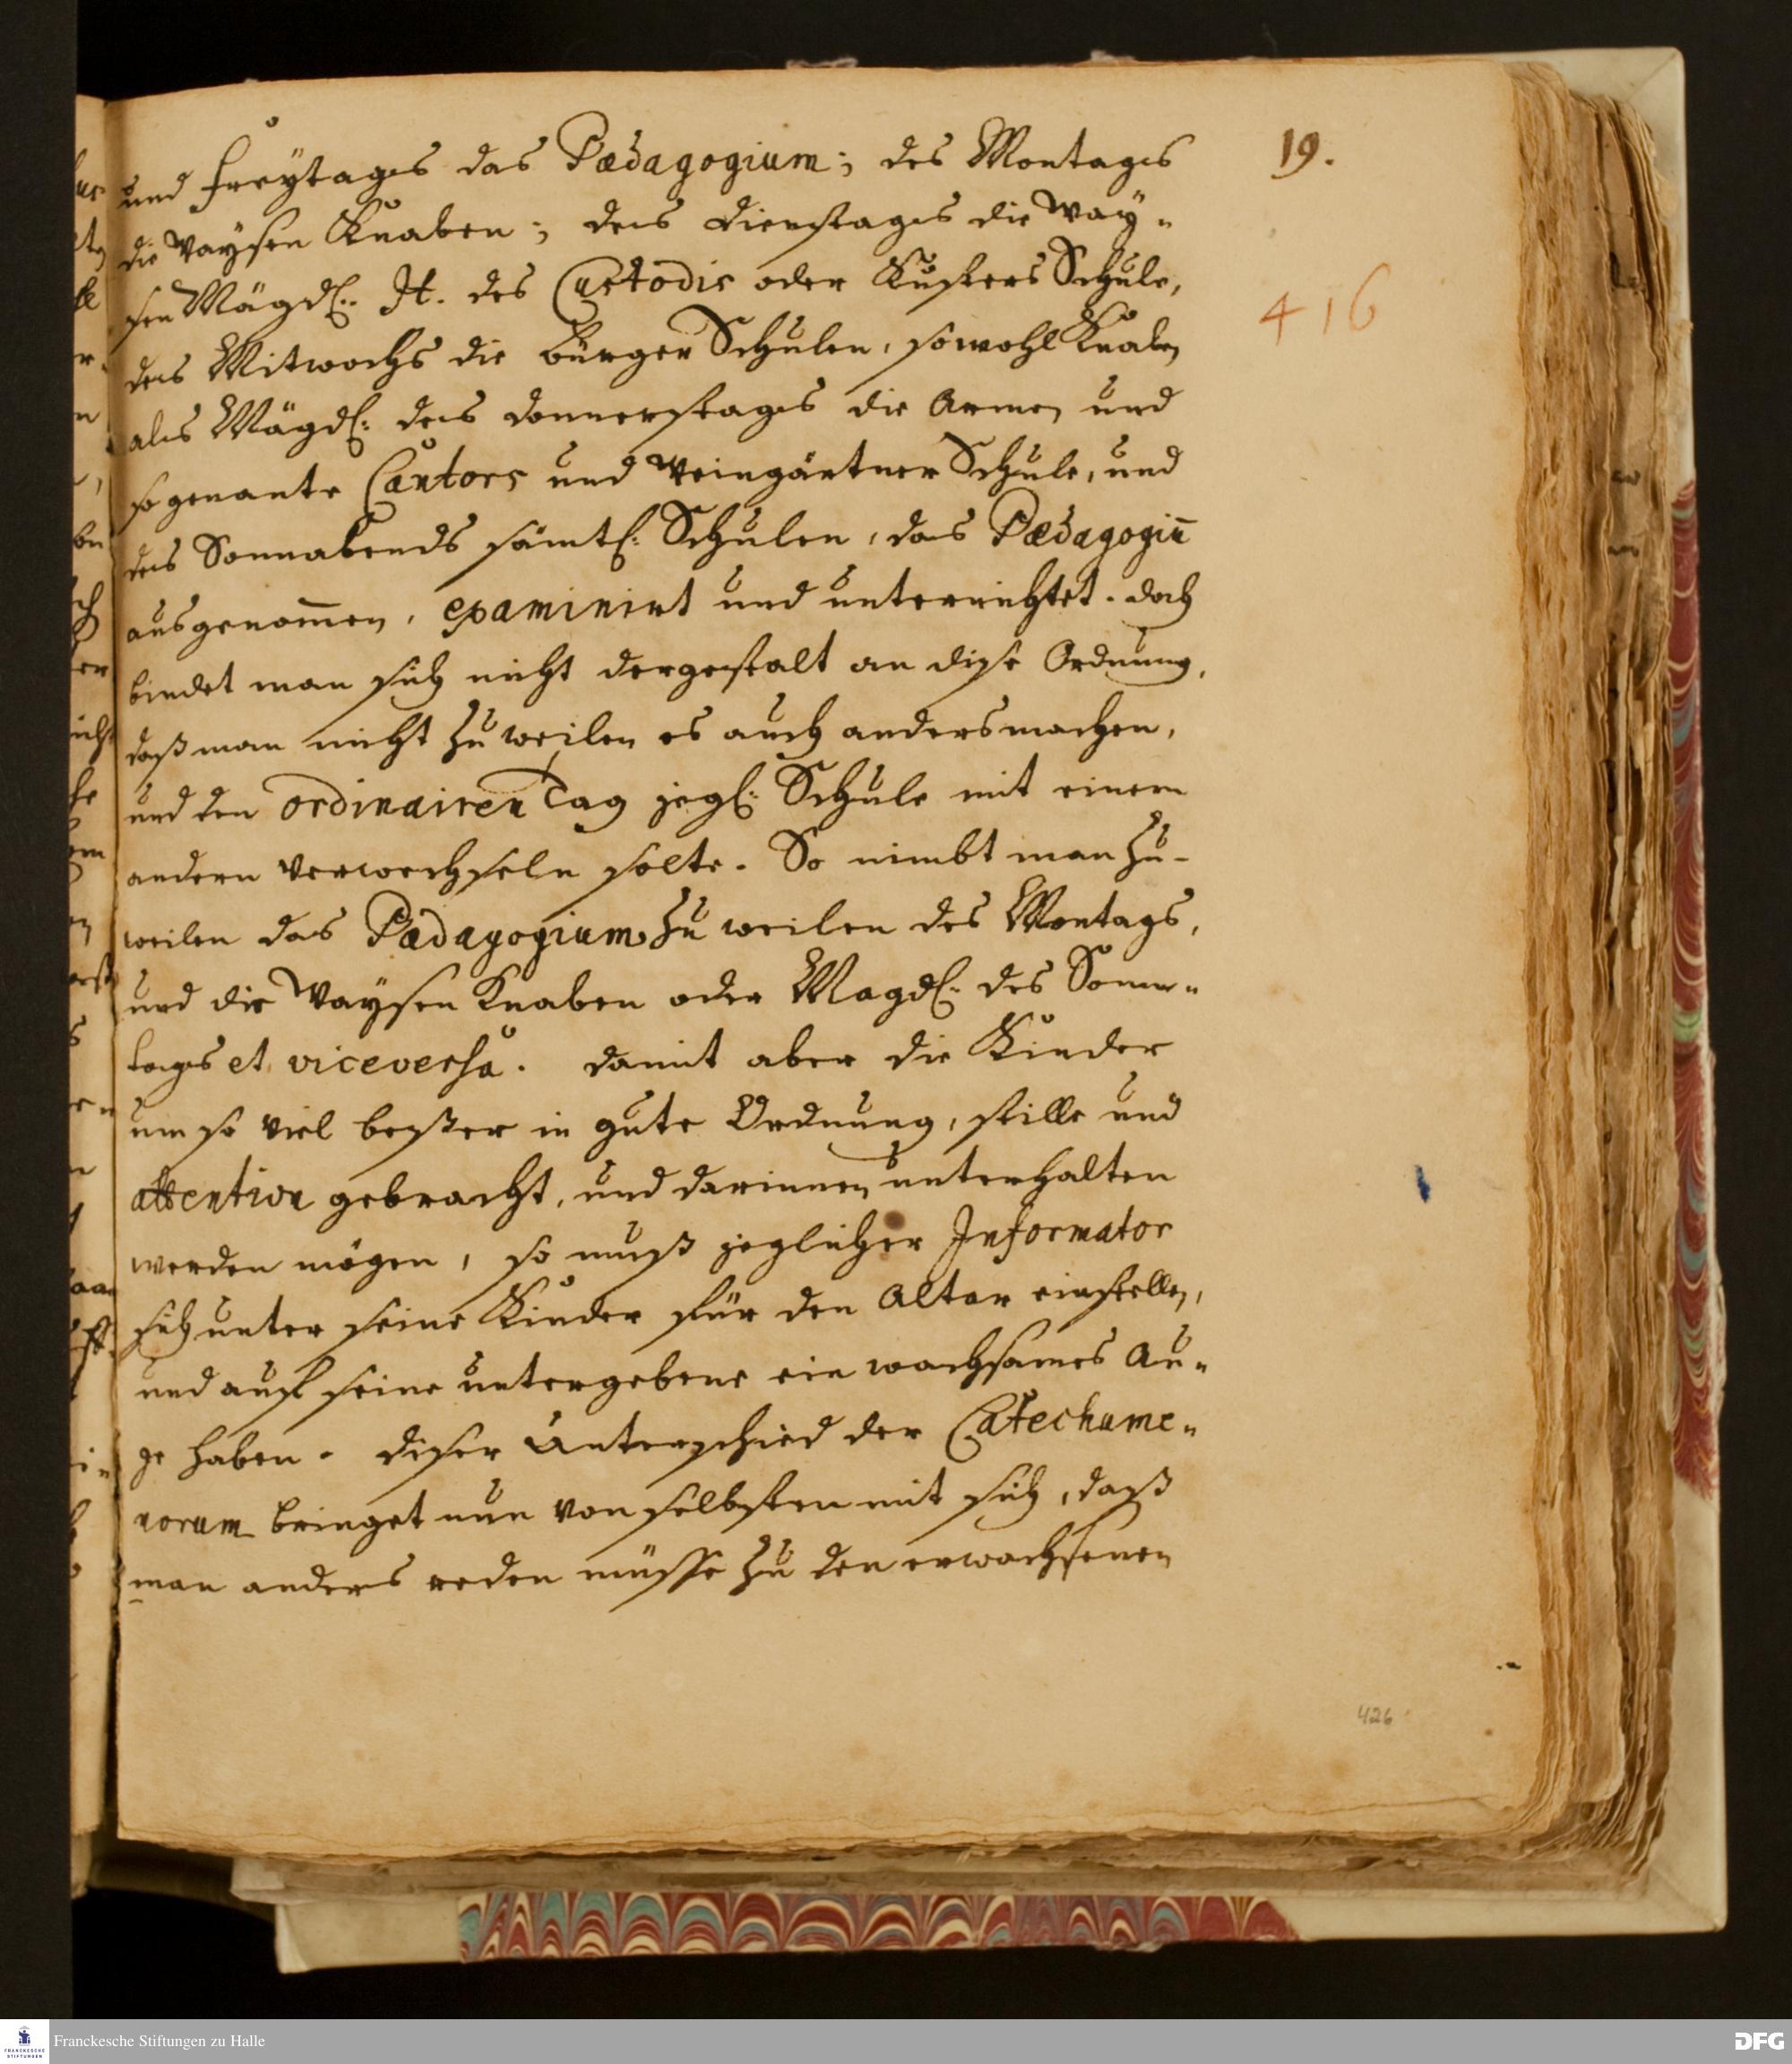 19.
und Freytages das Pædagogium; des Montages
die Waysen Knaben; des Dienstages die Way=
sen Mägdl. It. des Custodis oder Küsters Schule,
des Mitwochs die Bürger Schulen, sowohl Knaben
als Mägdl: des Donnerstages die Armen und
so genante Cantors und Weingärtner Schule, und
des Sonnabends sämtl: Schulen, das Pædagogiū
ausgenom̄en, examinirt und unterrichtet. Doch
bindet man sich nicht dergestalt an diese Ordnung,
daß man nicht zuweilen es auch anders machen,
und den ordinairen Tag jegl: Schule mit einem
andern verwechseln solte. So nimbt man zu-
weilen das Pædagogium zuweilen des Montags,
und die Waysen Knaben oder Magdl. des Sonn=
tages et viceversa. Damit aber die Kinder
um so viel beßer in gute Ordnung, stille und
attention gebracht, und darinnen unterhalten
werden mögen, so muß jeglicher Informator
sich unter seine Kinder für den Altar einstellen,
und auf seine untergebene ein wachsames Au=
ge haben. Dieser Unterschied der Catechume=
norum bringet nun von selbsten mit sich, daß
man anders reden müsse zu den erwachsenen
416
426
Franckesche Stiftungen zu Halle
FRANCKESCHE STIFTUNGEN
DFG